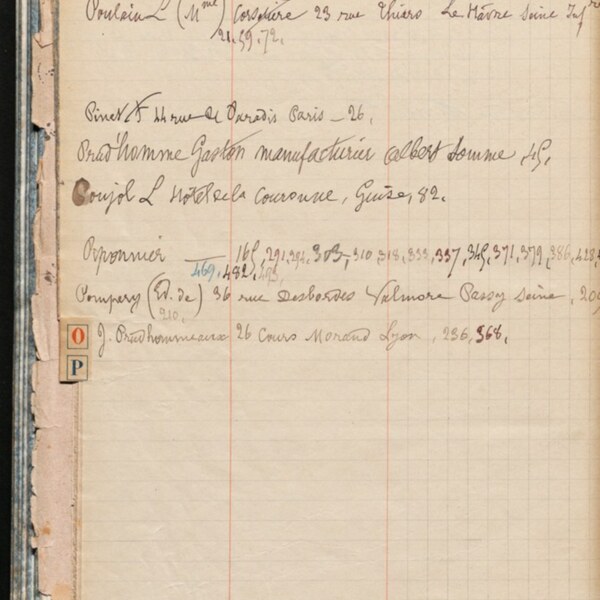 Poulain L (Mme) Corsetière 23 rue Thiers Le Hâvre Seine Infre
21.59.72.
Pinet F 44 rue de Paradis Paris - 26.
Prud'homme Gaston manufacturier Albert Somme, 45,
Poujol L Hôtel de la Couronne, Guise, 82.
Piponnier 165, 291, 294, 303, 310, 318, 333, 337, 345, 371, 379, 386, 428,
469, 482, 495,
Pompery (Ed. de) 36 rue Desbordes Valmore Passy Seine, 209
210.
J. Prudhommeaux 26 Cours Morand Lyon, 236, 368.
O
P